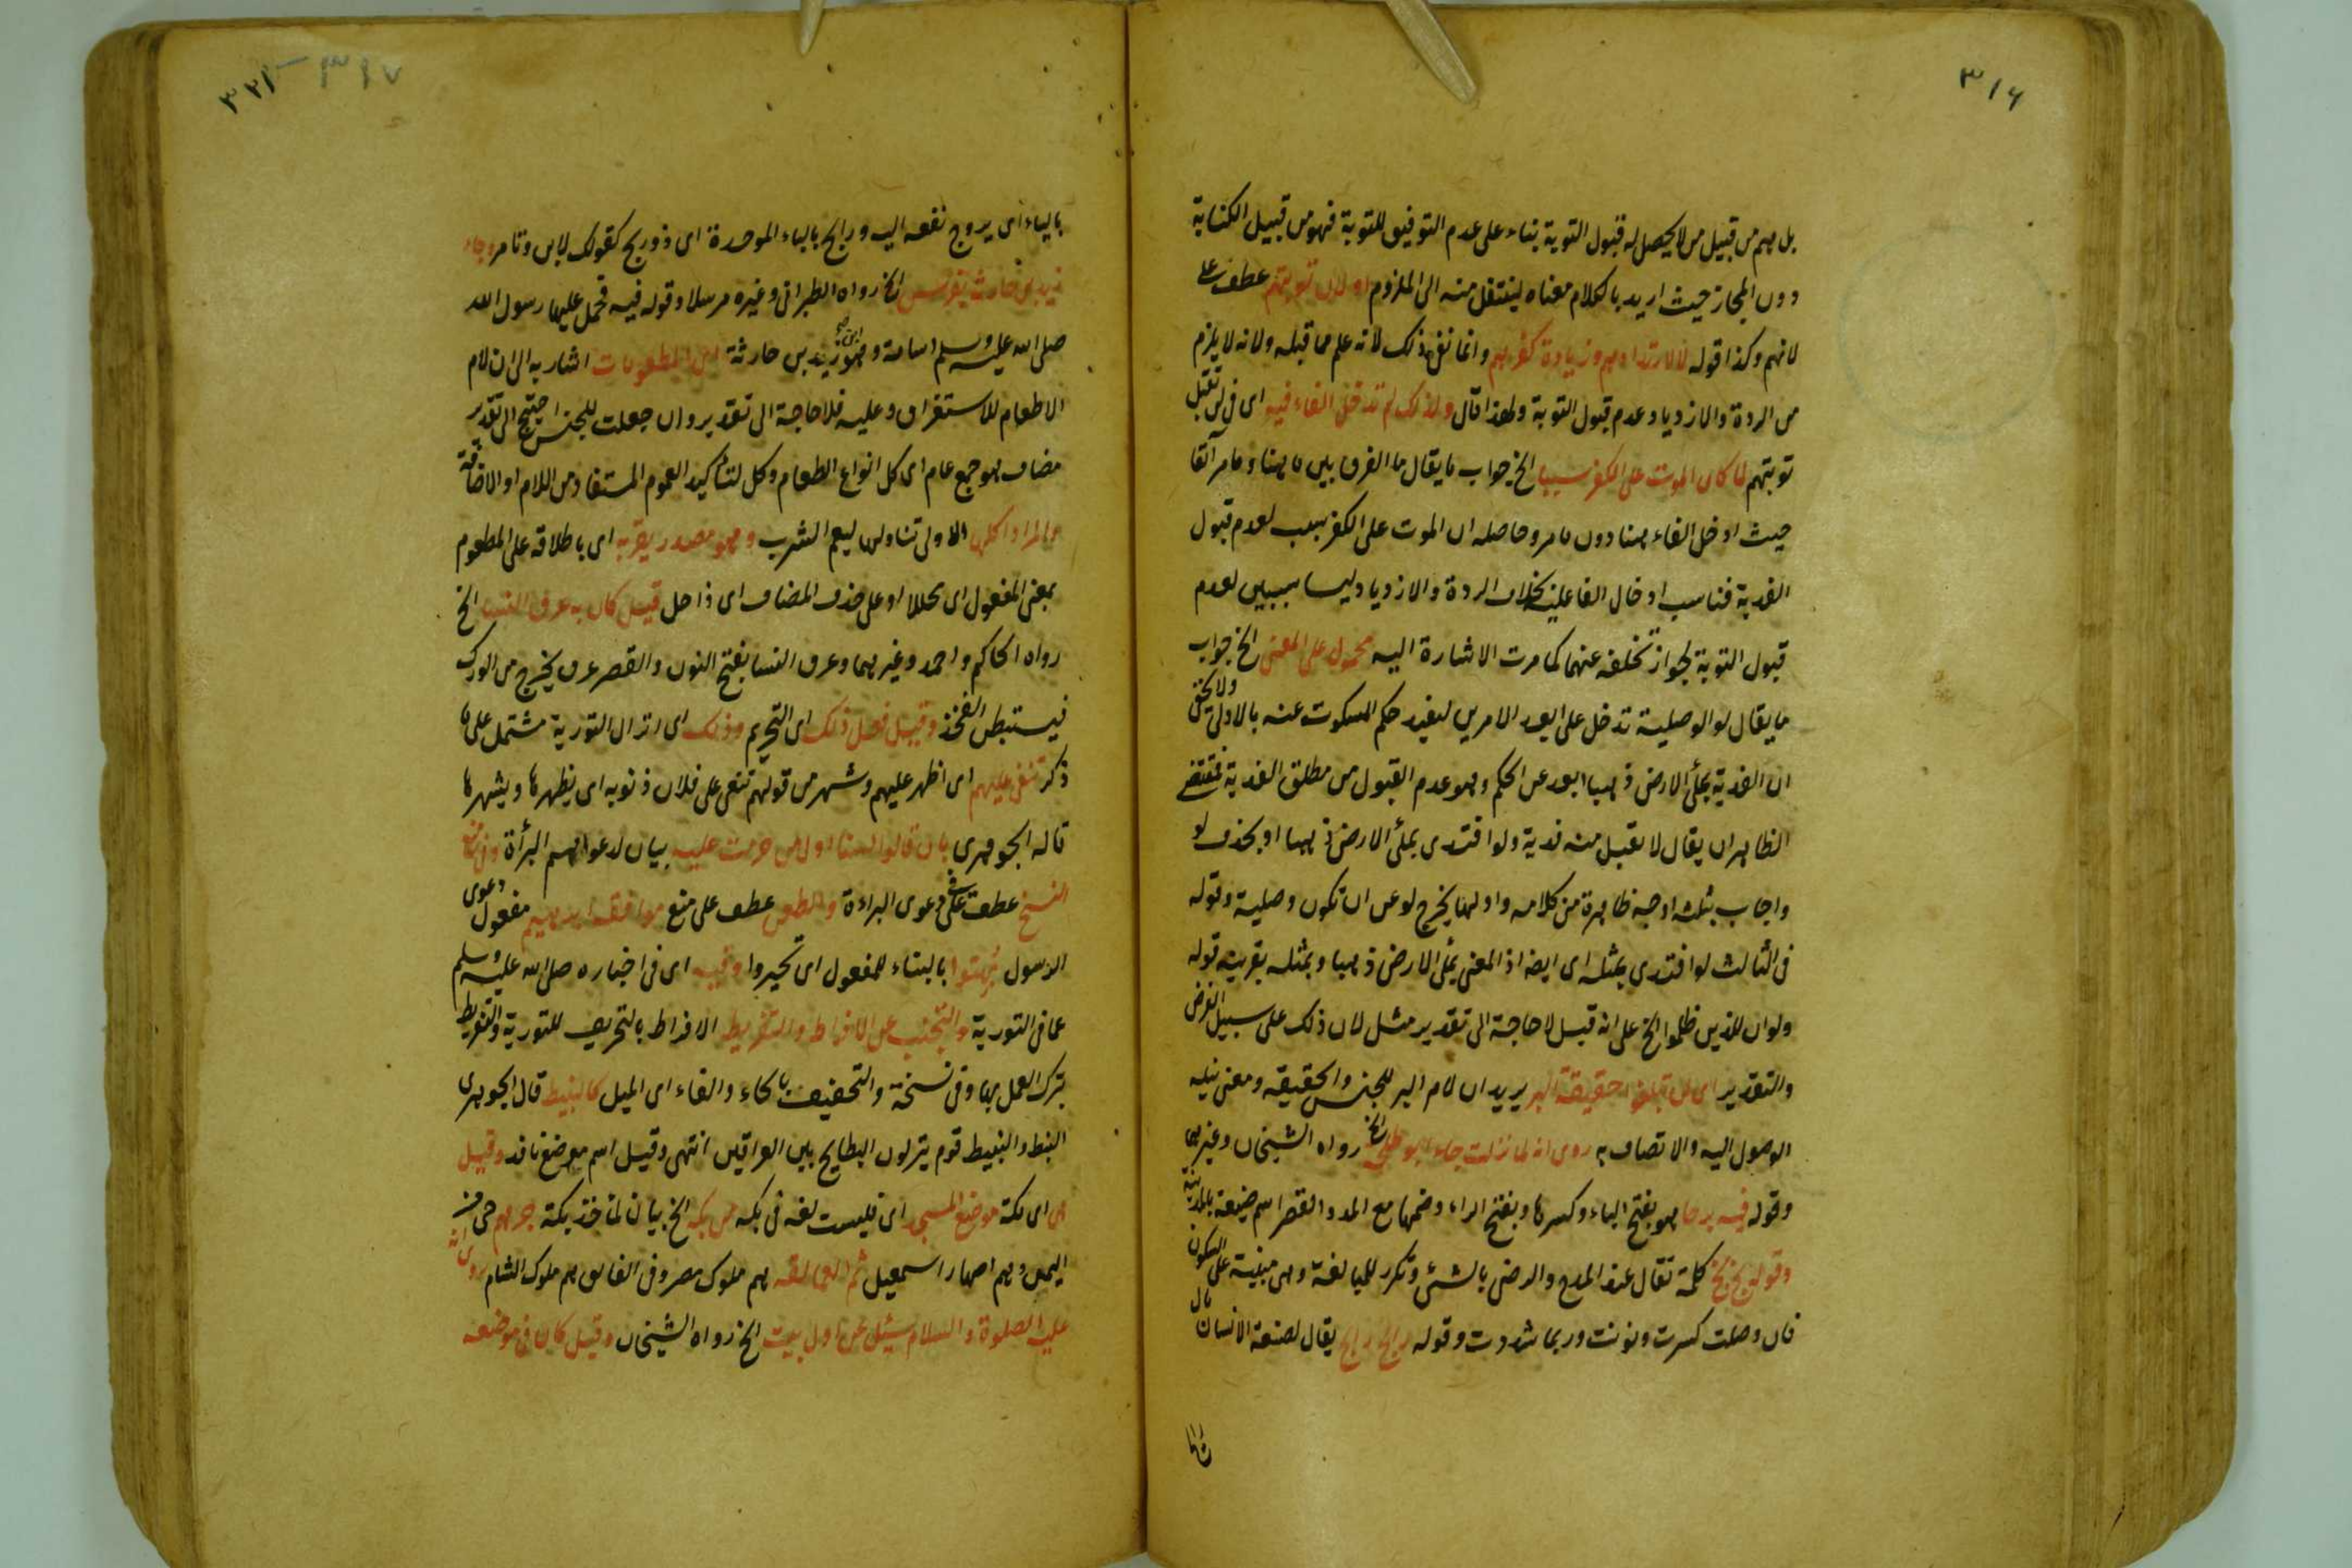 ٣١٦
بل هم من قبيل من لا يحصل له قبول التوبة بناء على عدم التوفيق للتوبة فهو من قبيل الكناية
دون المجاز حيث اريد بالكلام معناه لينتقل منه الى الملزوم او لان توبتهم عطف على
لانهم وكذا قوله لا لارتدادهم وزيادة كفرهم وانما نفى ذلك لانه علم مما قبله ولانه لا يلزم
من الردة والازدياد عدم قبول التوبة ولهذا قال ولذلك لم تدخل الفاء فيه اى فى لن تقبل
توبتهم لما كان الموت على الكفر سببا الخ جواب ما يقال ما الفرق بين ما هنا وما مر آنفا
حيث ادخل الفاء هنا دون ما مر وحاصله ان الموت على الكفر سبب لعدم قبول
الفدية فناسب ادخال الفا عليه بخلاف الردة والازدياد ليسا بسببين لعدم
قبول التوبة لجواز تخلفه عنهما كما مرت الاشارة اليه محمول على المعنى الخ جواب
ما يقال لو الوصلية تدخل على ابعد الامرين ليفيد حكم المسكوت عنه بالاولى ولا يخفى
ان الفدية بملأ الارض ذهبا ابعد عن الحكم وهو عدم القبول من مطلق الفدية فمقتضى
الظاهر ان يقال لا تقبل منه فدية ولو افتدى بملأ الارض ذهبا او بحذف لو
واجاب بثلث اوجه ظاهرة من كلامه واولها يخرج لو عن ان تكون وصلية وقوله
فى الثالث لو افتدى بمثله اى ايضا اذ المعنى بملأ الارض ذهبا وبمثله بقرينة قوله
ولو ان للذين ظلموا الخ على انه قيل لا حاجة الى تقدير مثل لان ذلك على سبيل الفرض
والتقدير اى لن تبلغوا حقيقة البر يريد ان لام البر للجنس والحقيقة ومعنى نيله
الوصول اليه والاتصاف به روى انه لما نزلت جاء ابو طلحة الخ رواه الشيخان وغيرهما
وقوله فيه بيرحا هو بفتح الباء وكسرها وبفتح الراء وضمها مع المد والقصر اسم ضيعة بالمدينة
وقوله بخ بخ كلمة تقال عند المدح والرضى بالشئ وتكرر للمبالغة وهى مبنية على السكون
فان وصلت كسرت ونونت وربما شددت وقوله رابح رايح يقال لضيعة الانسان مال
٣١٧
٣٢١
بالياء اى يروح نفعه اليه ورابح بالباء الموحدة اى ذو ربح كقولك لابن وتامر وجاء
زيد بن حارثة بفرس الخ رواه الطبرانى وغيره مرسلا وقوله فيه فحمل عليها رسول الله
صلى الله عليه وسلم اسامة وهو ابن زيد بن حارثة اى المطعومات اشار به الى ان لام
الاطعام للاستغراق وعليه فلا حاجة الى تقدير وان جعلت للجنس احتيج الى تقدير
مضاف هو جمع عام اى كل انواع الطعام وكل لتأكيد العموم المستفاد من اللام او الاضافة
والمراد اكلها الاولى تناولها ليعم الشرب وهو مصدر يقربه اى باطلاقه على المطعوم
بمعنى المفعول اى محللا او على حذف المضاف اى ذا حل قيل كان به عرق النسا الخ
رواه الحاكم واحمد وغيرهما وعرق النسا بفتح النون والقصر عرق يخرج من الورك
فيستبطن الفخذ وقيل فعل ذلك اى التحريم وذلك اى انزال التورية مشتمل على ما
ذكر تنعى عليهم اى اظهر عليهم وشهر من قولهم تنعى على فلان ذنوبه اى يظهرها ويشهرها
قاله الجوهرى بان قالوا لسنا اول من حرمت عليه بيان لدعواهم البرأة وفى منع
النسخ عطف على فى دعوى البراءة والطعن عطف على منع موافقة ابراهيم مفعول دعوى
الرسول بهتوا بالبناء للمفعول اى تحيروا وفيه اى فى اخباره صلى الله عليه وسلم
عما فى التورية والتجنب عن الافراط والتفريط الافراط بالتحريف للتورية والتفريط
بترك العمل بها وفى نسخة والتحنيف بالحاء والفاء اى الميل كالنبيط قال الجوهرى
النبط والنبيط قوم ينزلون البطايح بين العراقين انتهى وقيل اسم موضع نافد وقيل
هى اى بكة موضع المسجد اى فليست لغة فى بكة من بكه الخ بيان لمأخذ بكة جرهم حى من
اليمن وهم اصهار اسمعيل ثم العمالقة هم ملوك مصر وفى الفايق هم ملوك الشام روى انه
عليه الصلوة والسلام سئل عن اول بيت الخ رواه الشيخان وقيل كان فى موضعه